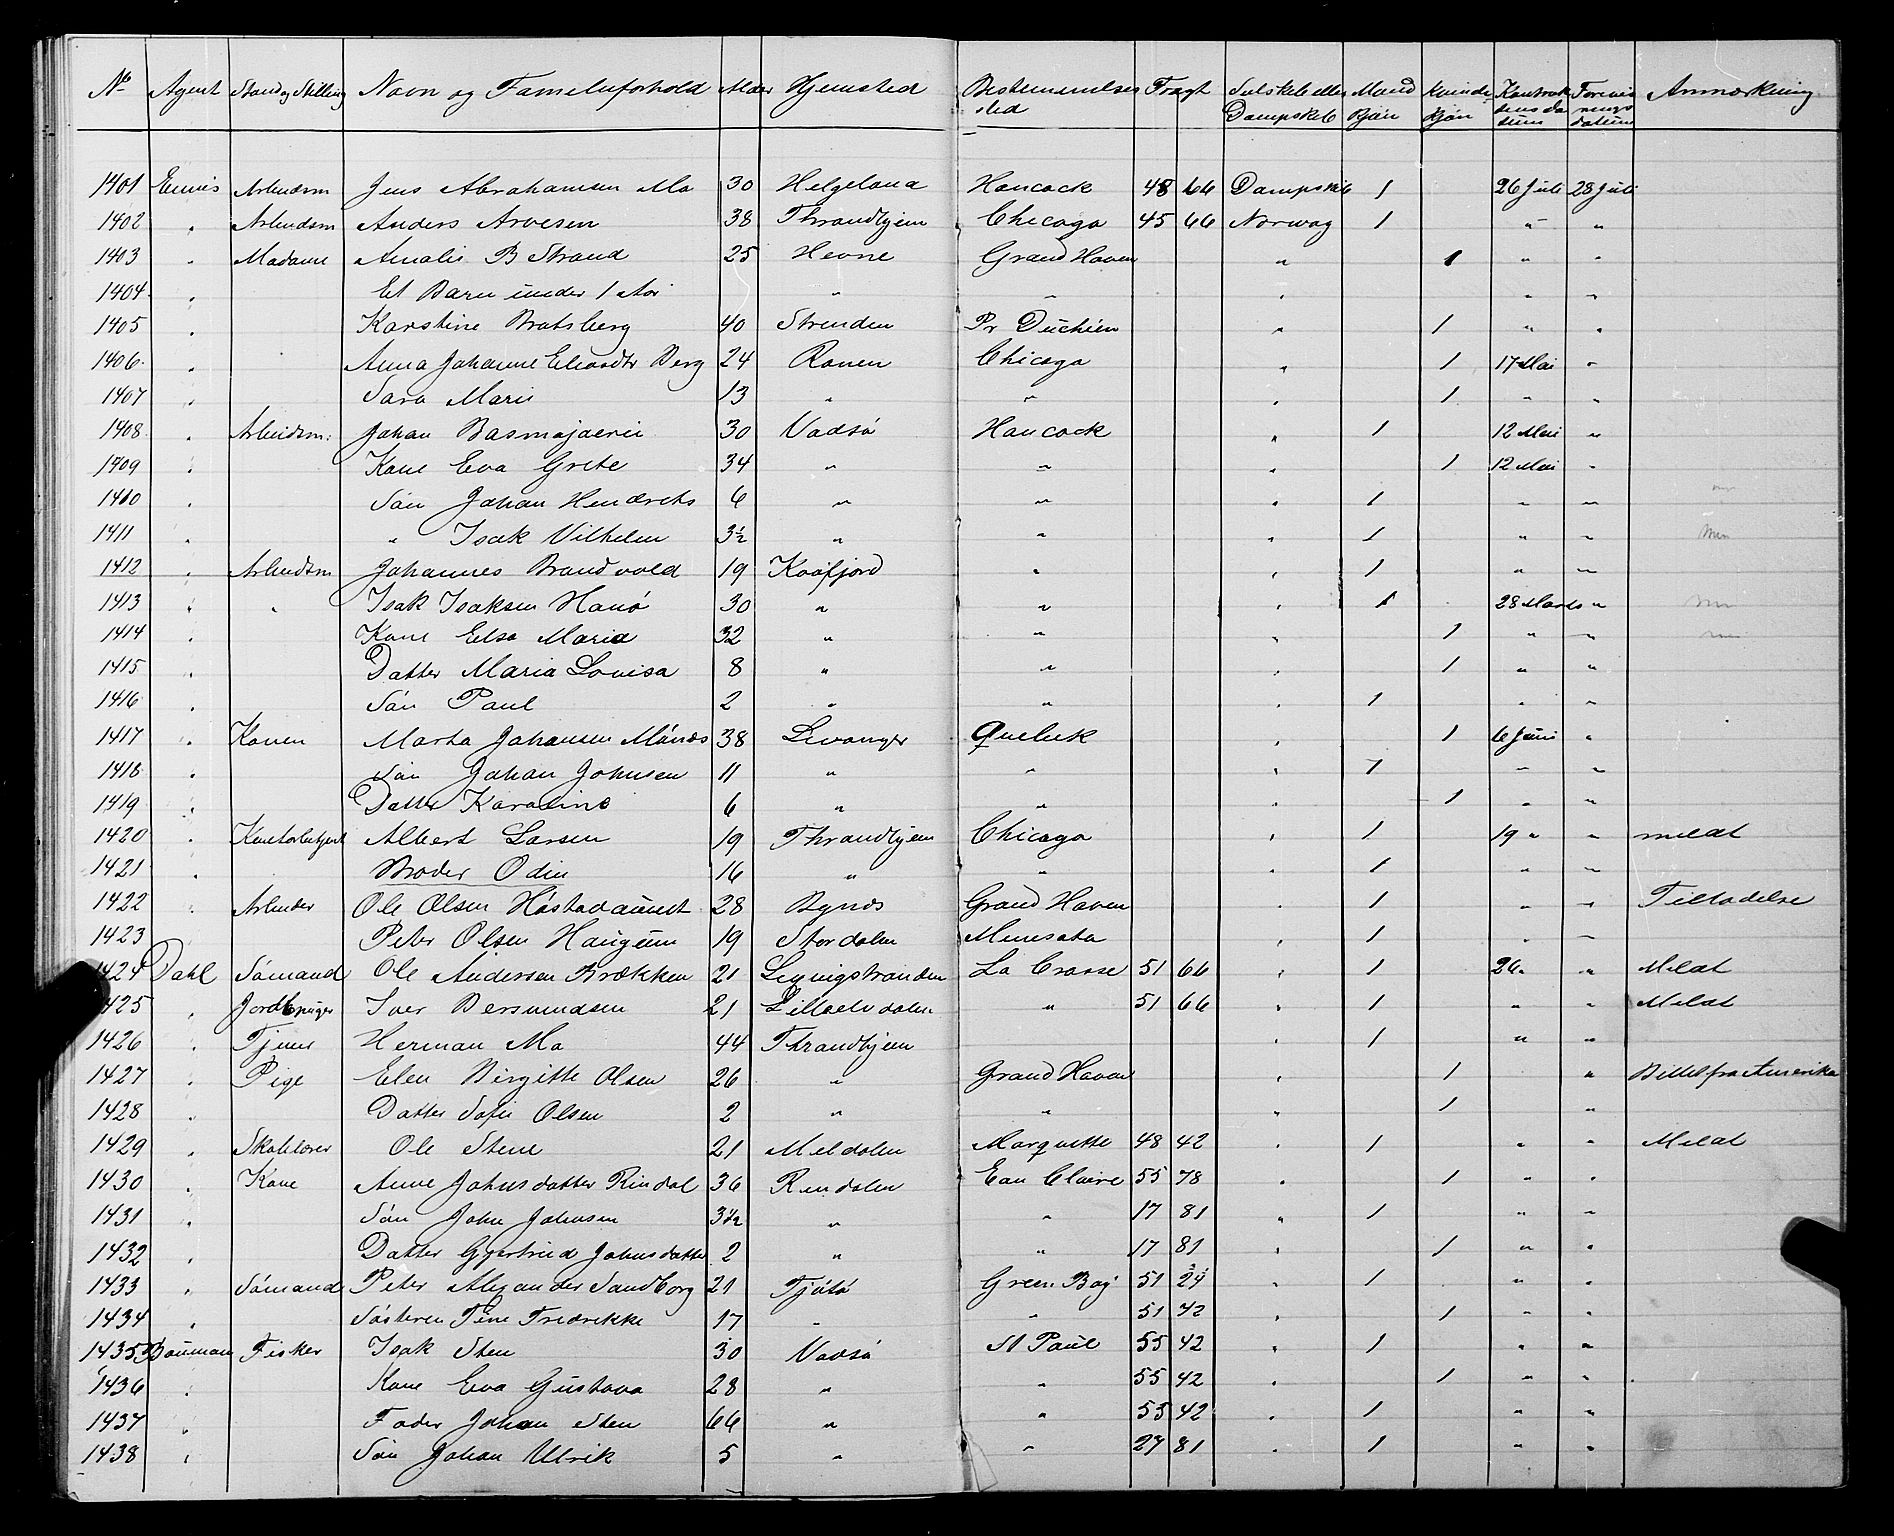 No Agent Stand og Stilling Navn og Familieforhold Alder Hjemsted Bestemmelses sted Fragt Seilskib eller Dampskib Mand kjøn Kvinde kjøn Kontrak tens da tum Forevis nings datum Anmærkning
1401 Ennis Arbeidsm Jens Abrahamsen Mo 30 Helgeland Hancock 48 66 Dampskib 1 26 Juli 28 Juli
1402 " Arbeidsm Anders Arvesen 38 Throndhjem Chicago 45 66 Norway 1 " "
1403 " Madame Amalie B Strand 25 Hevne Grand Haven " 1 " "
1404 " Et Barn under 1 Aar " " " " "
1405 " Karstine Bratsberg 40 Strinden Pr Duchien " 1 " "
1406 " Anna Johanne Berg 24 Ranen Chicago " 1 17 Mai "
1407 " Sara Marie 13 " " " 1 " "
1408 " Arbeidsm: Johan 30 Vadsø Hancock " 1 12 Mai "
1409 " Kone Eva Grete 34 " " " 1 12 Mai "
1410 " Søn Johan 6 " " " 1 " "
1411 " " Isak Vilhelm 3½ " " " 1 " "
1412 " Arbeidsm Johannes Brandvold 19 Kaafjord " " 1 " "
1413 " " Isak Isaksen 30 " " " 1 28 Marts "
1414 " Kone Elsa Maria 32 " " " 1 " "
1415 " Datter Maria Lovisa 8 " " " 1 " "
1416 " Søn Paul 2 " " " 1 " "
1417 " Konen Marta Johansen 38 Levanger Quebek " 1 6 Juni "
1418 " Søn Johan Johnsen 11 " " " 1 " "
1419 " Datter Karoline 6 " " " 1 " "
1420 " Kontorbetjent Albert Larsen 19 Thrandhjem Chicago " 1 19 " " meldt
1421 " Broder Odin 16 " " " 1 " "
1422 " Arbeider Ole Olsen 28 Bynæs Grand Haven " 1 " " Tilladelse
1423 Peter Olsen Haugum 19 Stordalen Minesota " 1 " "
1424 Dahl Sømand Ole Andersen Brækken 21 La Crosse 51 66 " 1 26 " " Meldt
1425 " Iver Bersvendsen 21 Lilleelvdalen " 51 66 " 1 " " Meldt
1426 " Tjener Herman Mo 44 Thrandhjem " 1 " "
1427 " Pige Elen Birgitte Olsen 26 " Grand Haven " 1 " Billet fra Amerika
1428 " Datter Sofie Olsen 2 " " " 1 "
1429 " Skolelærer Ole Stene 21 Meldalen Marquette 48 42 " 1 " " Meldt
1430 " Kone Anne Johnsdatter Rindal 36 Rindalen Eau Claire 55 78 " 1 " "
1431 " Søn John Johnsen 3½ " " 17 81 " 1 " "
1432 " Datter Gjertrud Johnsdatter 2 " " 17 81 " 1 " "
1433 " Sømand Peter Alexander Sandborg 21 Tjøtø Green Bay 51 24 " 1 " "
1434 " Søsteren Tine Fredrikke 17 " " 51 42 " 1 " "
1435 Bouman Fisker Isak Sten 30 Vadsø St Paul 55 42 " 1 " "
1436 " Kone Eva Gustava 28 " " 55 42 " 1 " "
1437 " Fader Johan Sten 66 " " 55 42 " 1 " "
1438 " Søn Johan Ulrik 5 " " 27 81 " 1 " "